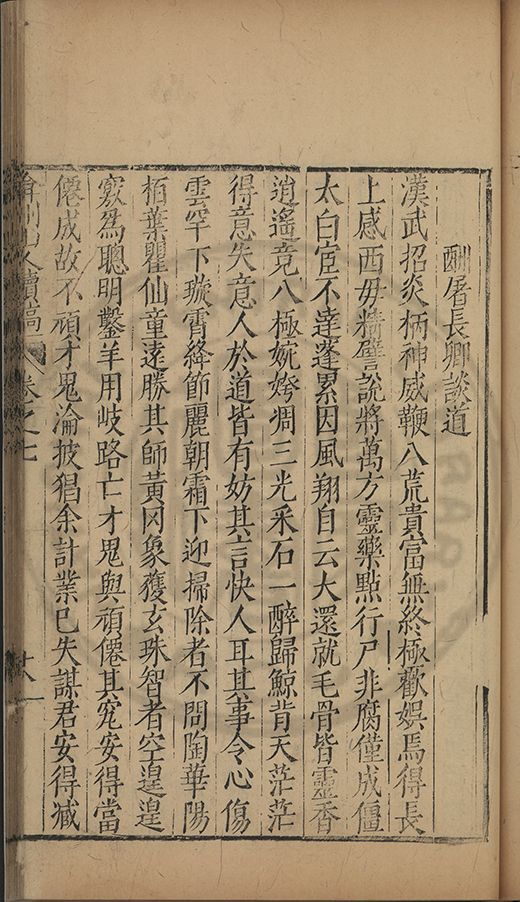 酬屠長卿談道
漢武招炎柄神威鞭八荒貴富無終極歡娛焉得長
上感西毋精譬說將萬方靈藥點行尸非腐僅成僵
太白宦不達蓬累因風翔自云大還就毛骨皆靈香
逍遙竟八極婉婍凋三光采石一醉歸鯨背天茫茫
得意失意人於道皆有妨其言快人耳其事令心傷
雲罕下璇霄絳節麗朝霜下迎掃除者不問陶華陽
栢葉瞿仙童遠勝其師黃冈象獲玄珠智者空遑遑
竅爲聰明鑿羊用岐路亡才鬼與頑僊其究安得當
僊成故不頑才鬼淪披猖余計業已失謀君安得减
人續稿 卷之七 廿八